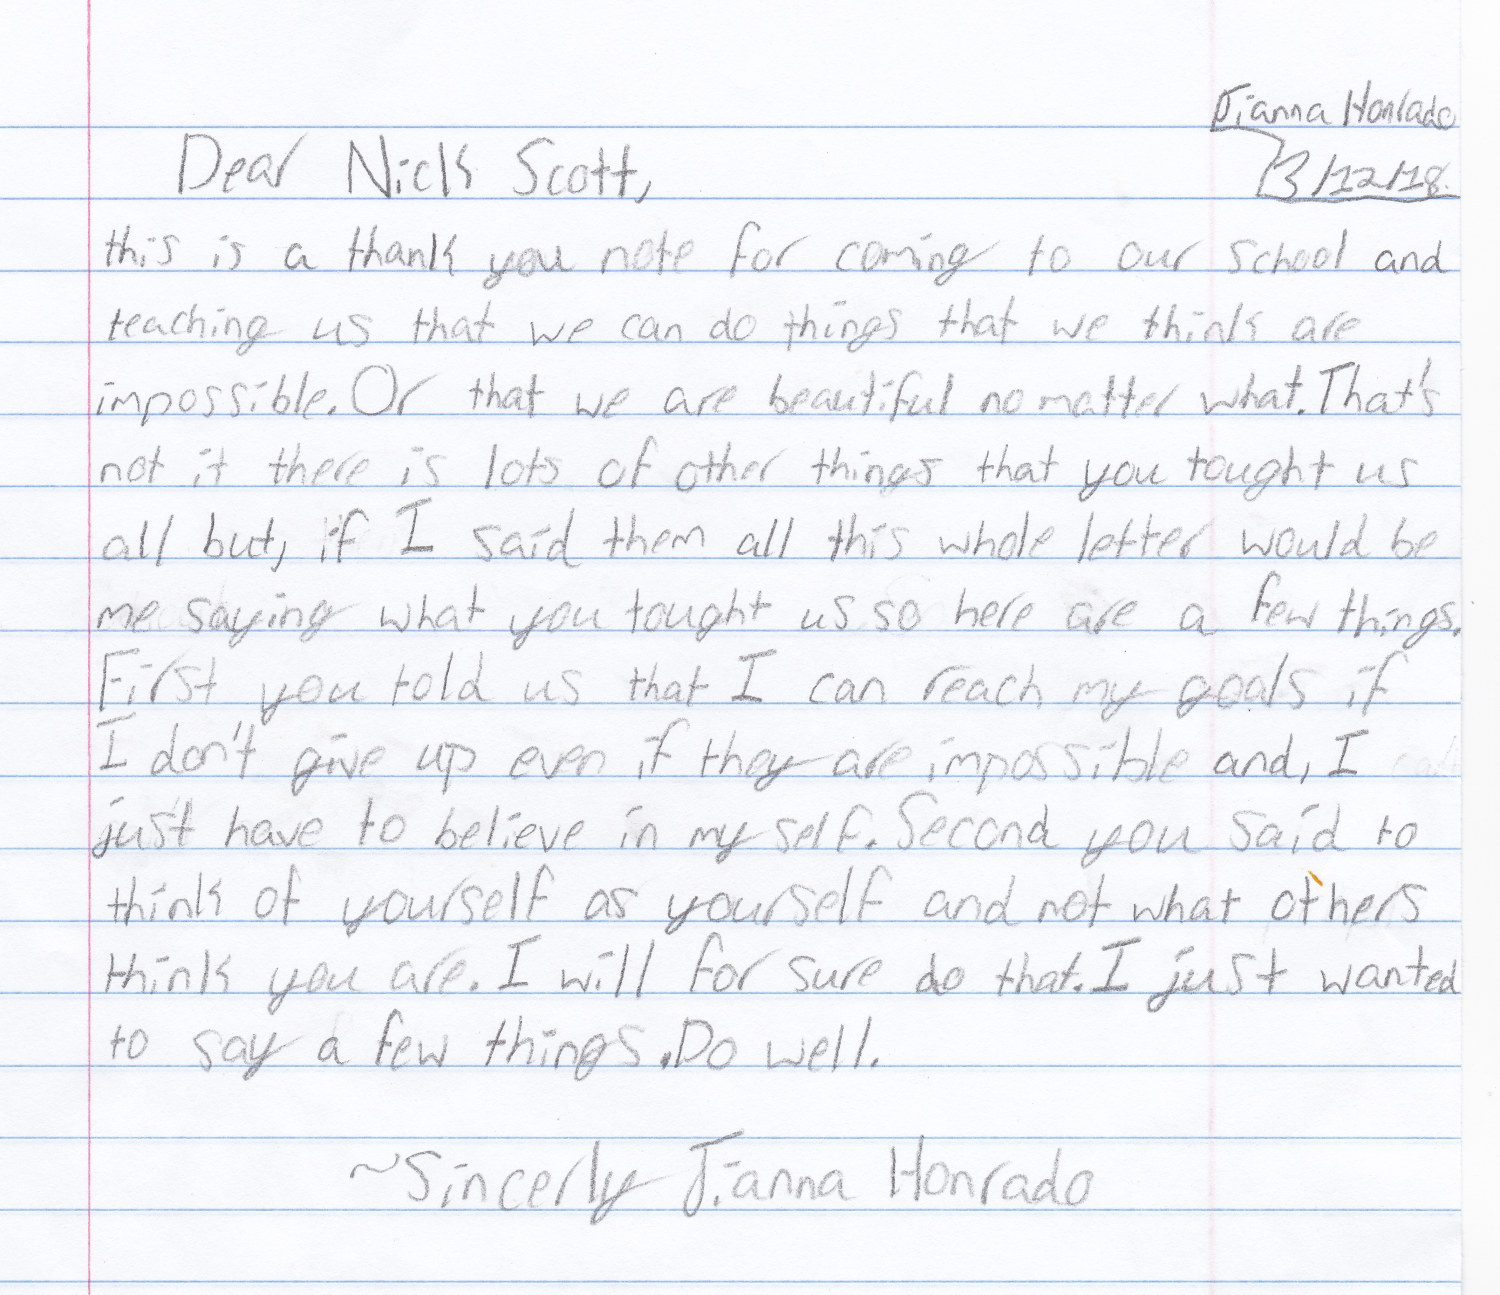 Jianna Honrado
3/12/18.
Dear Nick Scott,
this is a thank you note for coming to our school and
teaching us that we can do things that we think are
impossible. Or that we are beautiful no matter what. That's
not it there is lots of other things that you tought us
all but, if I said them all this whole letter would be
me saying what you tought us so here are a few things.
First you told us that I can reach my goals if
I don't give up even if they are impossible and, I
just have to believe in my self. Second you said to
think of yourself as yourself and not what others
think you are. I will for sure do that. I just wanted
to say a few things. Do well.
~Sincerly Jianna Honrado